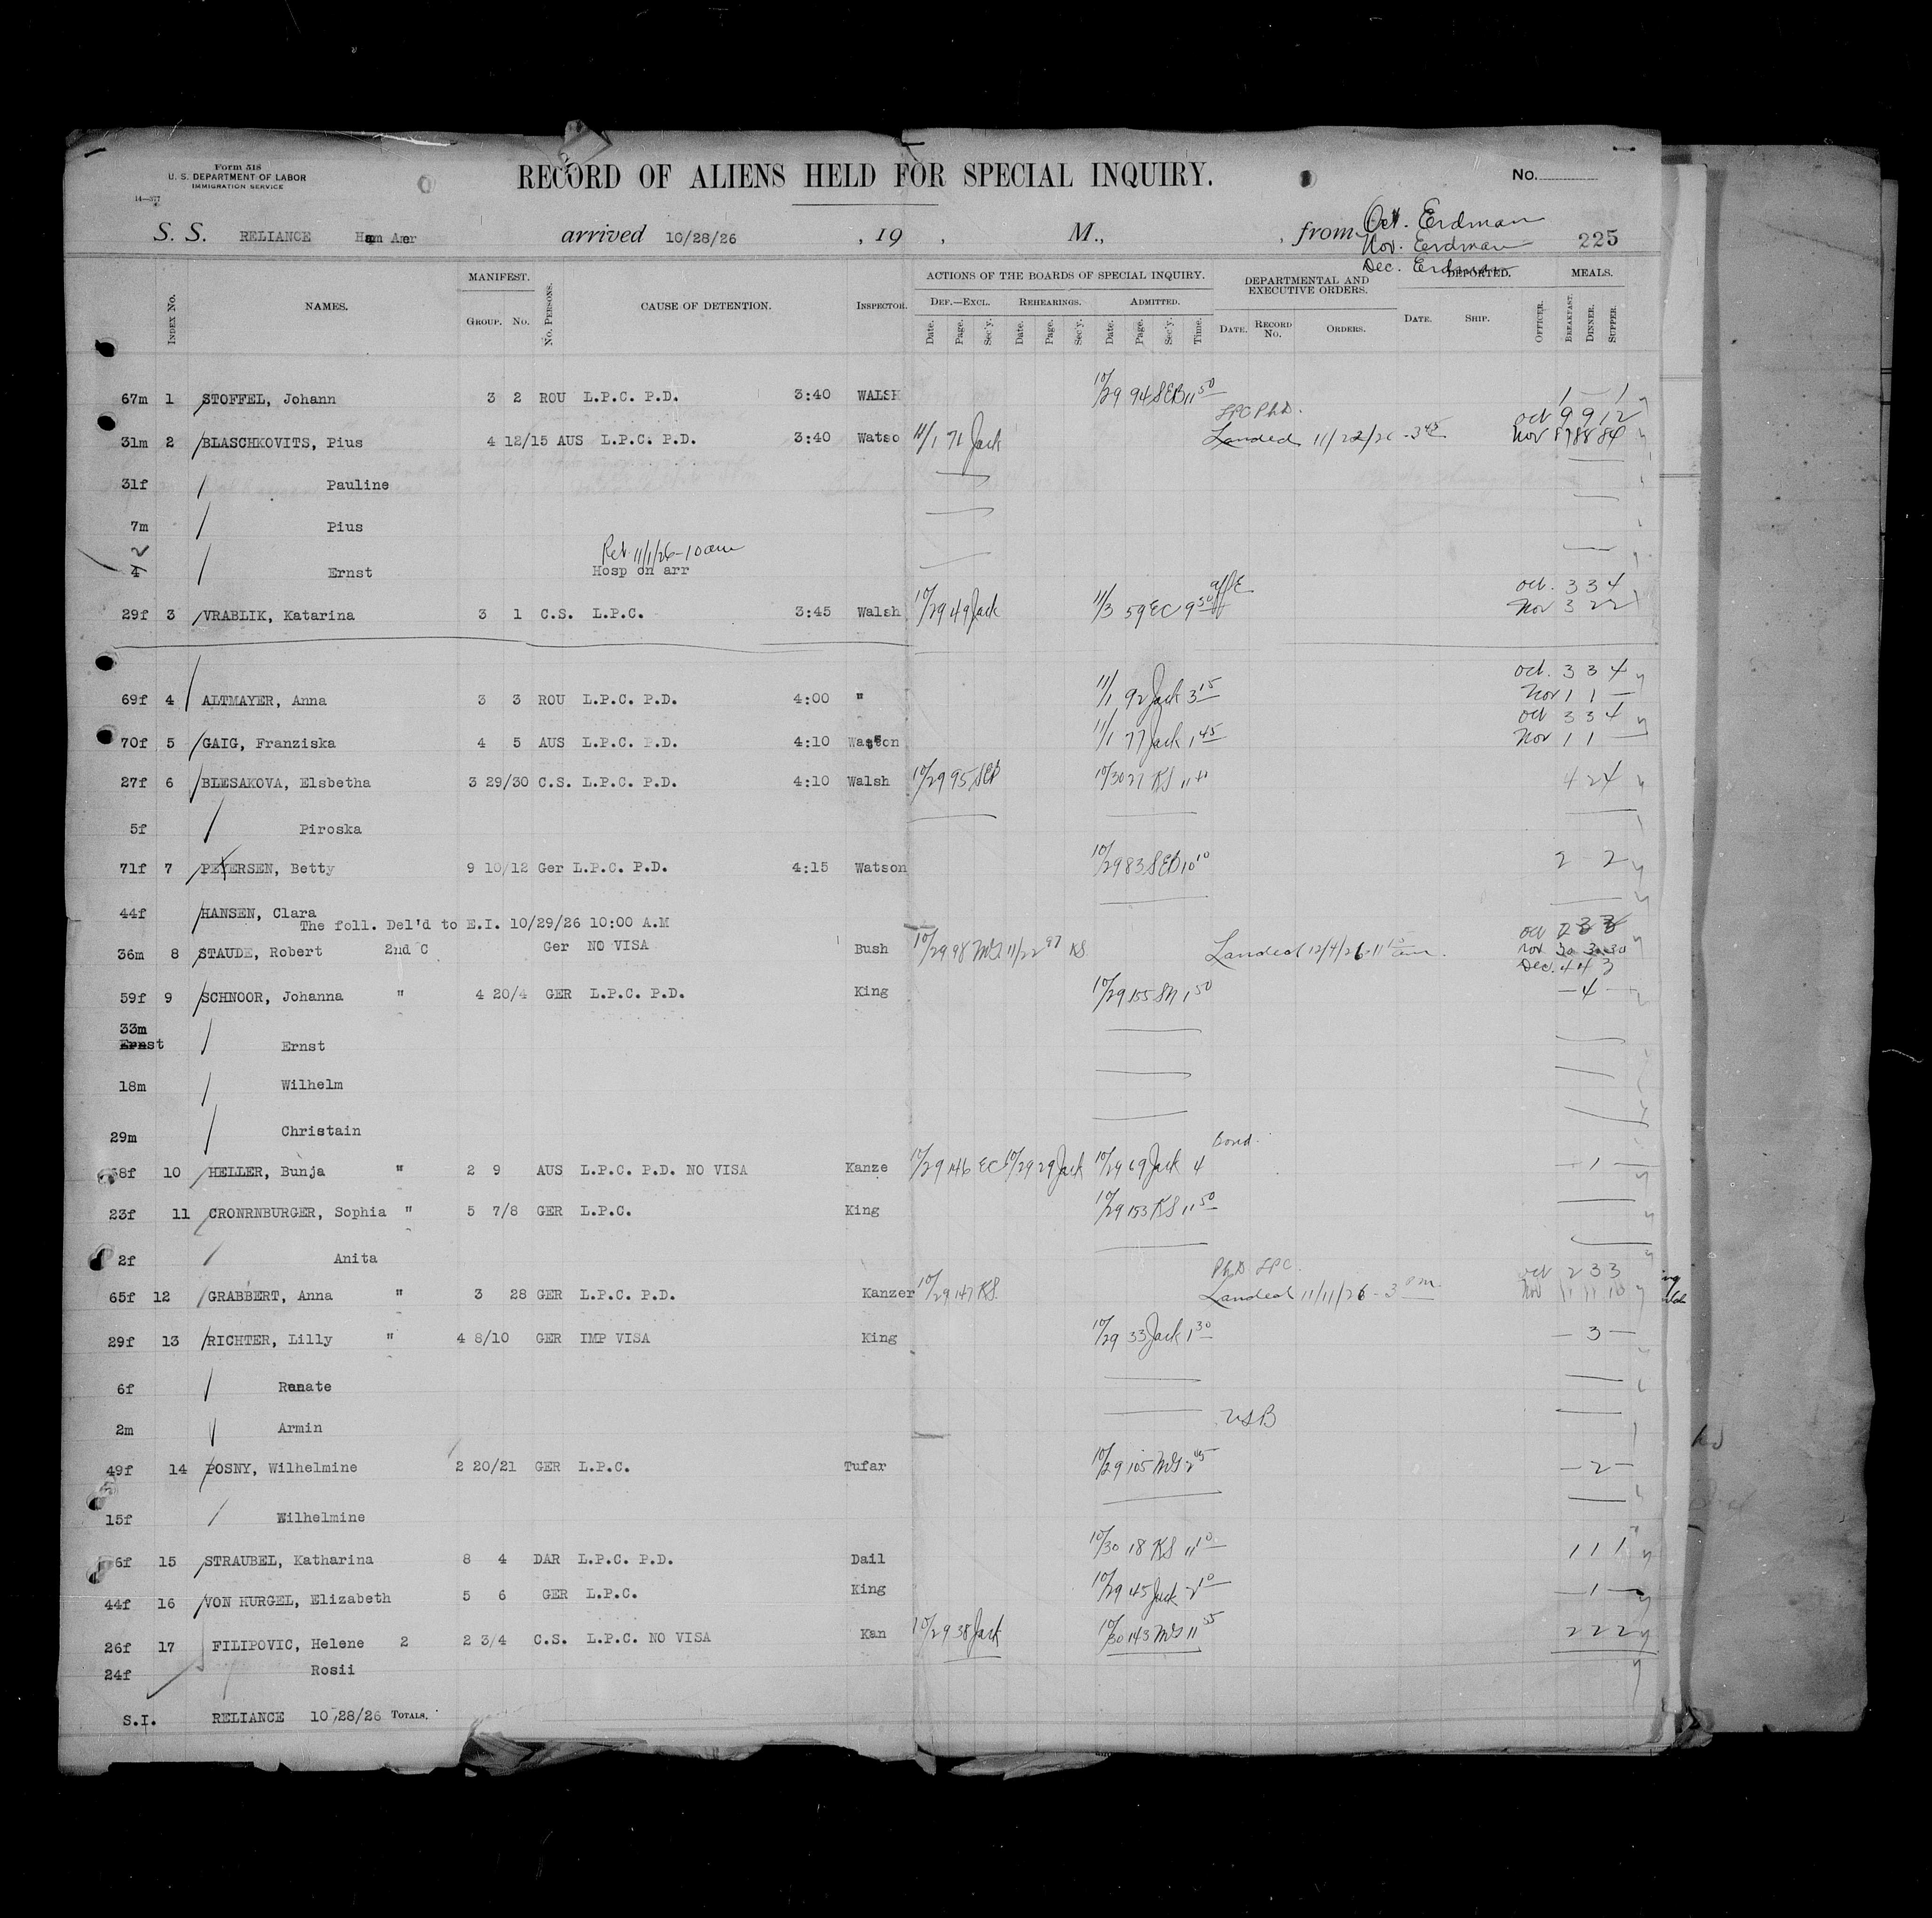 Form 518
U. S. DEPARTMENT OF LABOR
IMMIGRATION SERVICE
14—577
RECORD OF ALIENS HELD FOR SPECIAL INQUIRY.
No.
S. S. RELIANCE Ham Amer arrived 10/28/26 , 19 , M., , from Oct. Erdman
Nov. Erdman
Dec. Erdman
225
INDEX No. NAMES. MANIFEST. GROUP. No. No. PERSONS. CAUSE OF DETENTION. INSPECTOR. ACTIONS OF THE BOARDS OF SPECIAL INQUIRY. DEPARTMENTAL AND EXECUTIVE ORDERS. DEPORTED. MEALS.
DEF.—EXCL. REHEARINGS. ADMITTED.
Date. Page. Sec'y. Date. Page. Sec'y. Date. Page. Sec'y. Time. DATE. RECORD No. ORDERS. DATE. SHIP. OFFICER. BREAKFAST. DINNER. SUPPER.
67m 1 STOFFEL, Johann 3 2 ROU L.P.C. P.D. 3:40 WALSH 10/29 94 SEB 11 50 1 — 1
LPC Ph.D. Oct 9 9 12
31m 2 BLASCHKOVITS, Pius 4 12/15 AUS L.P.C. P.D. 3:40 Watso 11/1 71 Jack Landed 11/22/26 - 3 45 Nov 87 88 84
31f Pauline
7m Pius
Ret 11/1/26 - 10 am
4 2 Ernst Hosp on arr
Oct. 3 3 4
29f 3 VRABLIK, Katarina 3 1 C.S. L.P.C. 3:45 Walsh 10/29 49 Jack 11/3 59 EC 9 30 Nov 3 2 2
Oct. 3 3 4
69f 4 ALTMAYER, Anna 3 3 ROU L.P.C. P.D. 4:00 " 11/1 92 Jack 3 15 Nov 1 1 —
Oct 3 3 4
70f 5 GAIG, Franziska 4 5 AUS L.P.C. P.D. 4:10 Watson 11/1 77 Jack 1 45 Nov 1 1 —
27f 6 BLESAKOVA, Elsbetha 3 29/30 C.S. L.P.C. P.D. 4:10 Walsh 10/29 95 SEB 10/30 27 KS 11 40 4 2 4
5f Piroska
71f 7 PETERSEN, Betty 9 10/12 Ger L.P.C. P.D. 4:15 Watson 10/29 83 SEB 10 10 2 2
44f HANSEN, Clara
The foll. Del'd to E.I. 10/29/26 10:00 A.M
Oct 2 3 3
36m 8 STAUDE, Robert 2nd C Ger NO VISA Bush 10/29 98 11/22 97 KS Landed 12/4/26 - 11 Nov. 30 30 30
Dec. 4 4 3
59f 9 SCHNOOR, Johanna " 4 20/4 GER L.P.C. P.D. King 10/29 155 1 50 — 4 —
33m
Ernst Ernst
18m Wilhelm
29m Christain
Bond.
10 HELLER, Bunja " 2 9 AUS L.P.C. P.D. NO VISA Kanze 10/29 146 EC 10/29 29 Jack 10/29 69 Jack 4 — 1 —
23f 11 CRONRNBURGER, Sophia " 5 7/8 GER L.P.C. King 10/29 153 KS 11 50
2f Anita
Ph.D LPC. Oct 2 3 3
65f 12 GRABBERT, Anna " 3 28 GER L.P.C. P.D. Kanzer 10/29 147 KS. Landed 11/11/26 - 3 pm. Nov 11 11 10
29f 13 RICHTER, Lilly " 4 8/10 GER IMP VISA King 10/29 33 Jack 1 30 — 3 —
6f Renate
2m Armin USB
49f 14 POSNY, Wilhelmine 2 20/21 GER L.P.C. Tufar 10/29 105 2 45 — 2 —
15f Wilhelmine
6f 15 STRAUBEL, Katharina 8 4 DAR L.P.C. P.D. Dail 10/30 18 KS 11 10 1 1 1
44f 16 VON HURGEL, Elizabeth 5 6 GER L.P.C. King 10/29 45 Jack 2 10 — 1 —
26f 17 FILIPOVIC, Helene 2 2 3/4 C.S. L.P.C. NO VISA Kan 10/29 38 Jack 10/30 143 11 55 2 2 2
24f Rosii
S.I. RELIANCE 10/28/26 TOTALS.